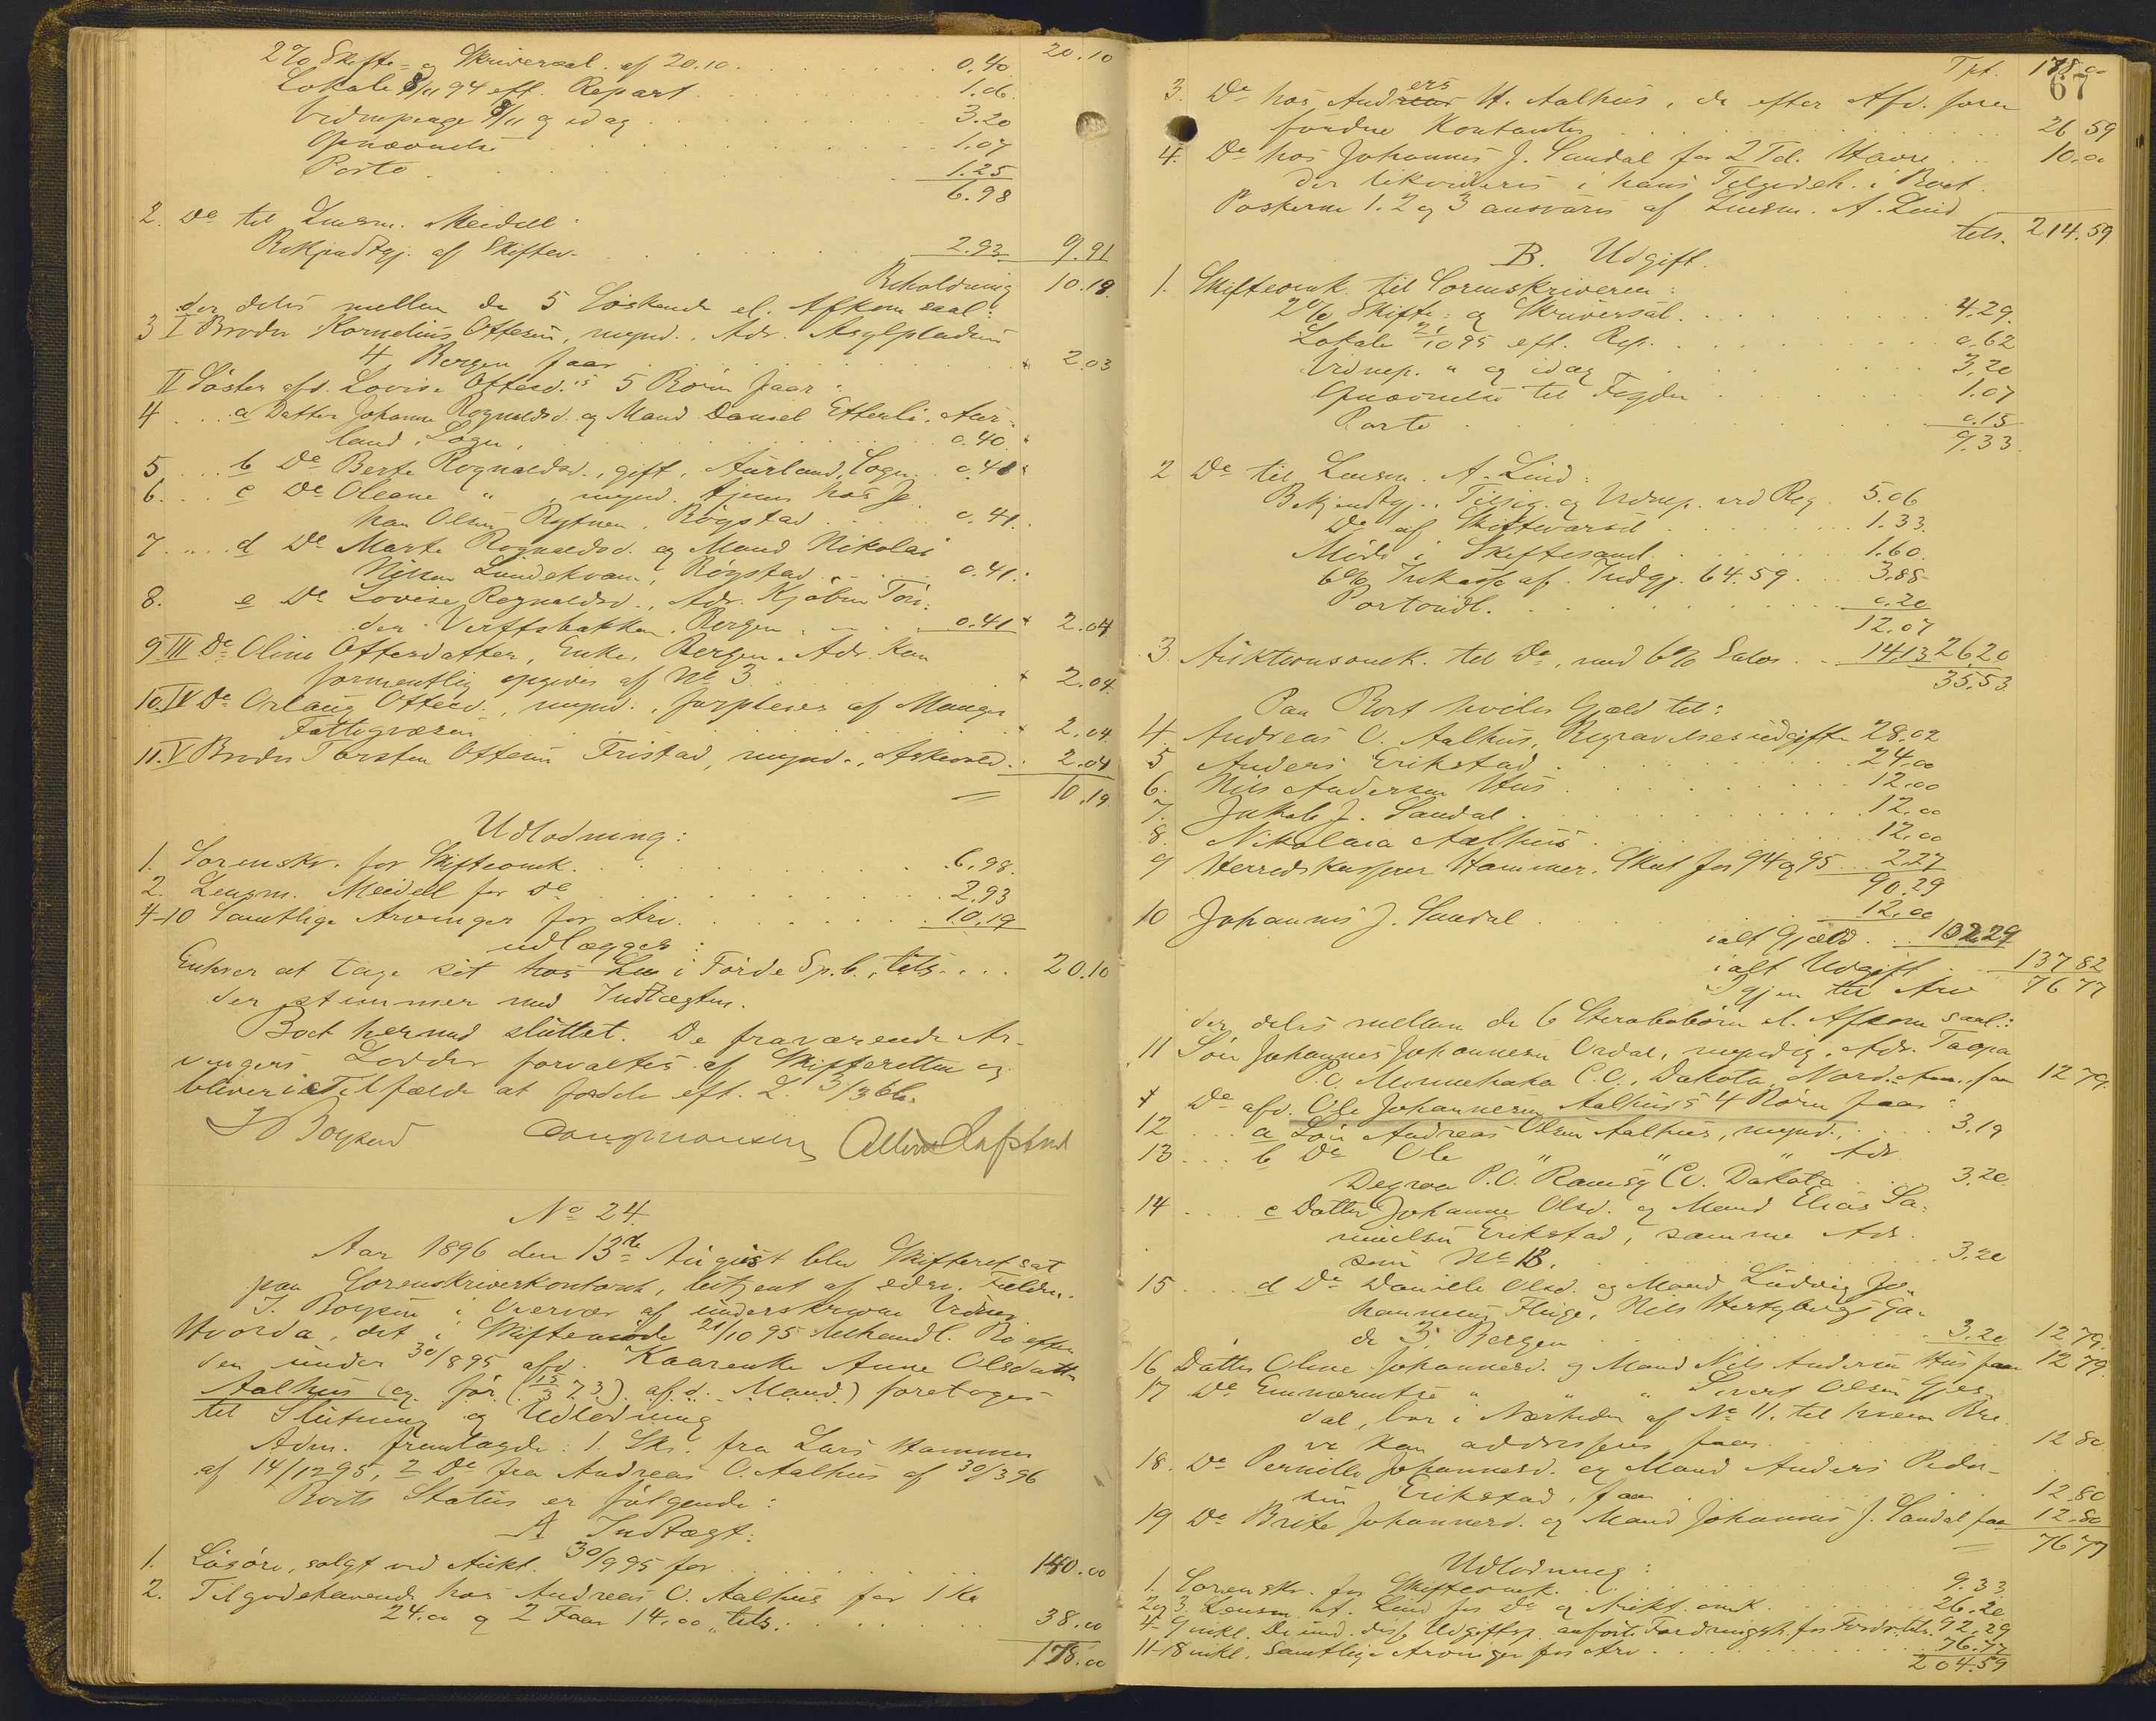 20.10
2% Skifte- og Skriversal. af 20.10 . . . 0.40
Lokale 8/11 94 eft. Repart. . . 1.06
Vidnepenge 8/11 og idag . . . 3.20
Opnævnelse . . . 1.07
Porto . . . 1.25
6.98
2. Do til Lensm. Meidell:
Bekjendtgj. af Skiftev. . . . 2.93 9.91
Beholdning 10.19
der deles mellem de 5 Söskende el. Afkom saal:
3 I Broder Kornelius Ottesen, mynd., Adr. Asylpladsen
4 Bergen faar . . . 2.03
II Söster afd. Lovise Ottesd.'s 5 Börn faar:
4 . . a Datter Johanne Rognaldsd. og Mand Daniel Etterli, Aur-
land, Sogn, . . . 0.40
5 . . b Do Berte Rognaldsd., gift, Aurland, Sogn . . 0.41
6 . . c Do Oleane " , mynd. tjener hos Jo-
han Olsen Rytnen, Rögstad . . . 0.41
7 . . d Do Marte Rognaldsd. og Mand Nikolai
Nilsen Lundekvam, Rögstad . . . 0.41
8. e Do Lovise Rognaldsd., Adr. Kjöbm. Tön-
der Verftsbakken, Bergen . . . 0.41 2.04
9 III Do Oline Ottersdatter, Enke, Bergen. Adr. kan
formentlig opgives af No 3 . . . 2.04
10. IV Do Orlaug Ottesd., mynd., forpleies af Manger
Fattigvæsen . . . 2.04
11. V Broder Torsten Ottesen Fristad, mynd., Askevold . . 2.04
= 10.19
Udlodning:
1. Sorenskr. for Skifteomk. . . . 6.98
2. Lensm. Meidell for Do . . . 2.93
4-10 Samtlige Arvinger for Arv . . . 10.19
udlægges:
Enhver at tage sit hos Len i Förde Sp.b., tils. . . . 20.10
der stemmer med Indtægten.
Boet hermed sluttet. De fraværende Ar-
vingers Lodder forvaltes af Skifteretten og
bliver i Tilfælde at fordele eft. L. 3/3 66.
J Boysen
No 24.
Aar 1896 den 13de August blev Skifteret sat
paa Sorenskriverkontoret, betjent af edsv. Fuldm.
J. Boysen i Overvær af underskrevne Vidner
Hvorda, det i Skiftemöde 21/10 95 behandl. Bo efter
den under 30/8 95 afd. Kaarenke Anne Olsdatter
Aalhus (og för (15/3 73) afd. Mand) foretoges
til Slutning og Udlodning
Adm. fremlagde: 1. Skr. fra Lars Hammer
af 14/12 95, 2 Do fra Andreas O. Aalhus af 30/3 96
Boets Status er fölgende:
A Indtægt:
1. Lösöre, solgt ved Aukt. 30/9 95 for . . . 140.00
2. Tilgodehavende hos Andreas O. Aalhus for 1 Ko
24.00 og 2 Faar 14.00, tils: . . . 38.00
178.00
67
Tpt. 178.00
3. Do hos Anders H. Aalhus, de efter Afd. fore-
fundne Kontanter . . . 26.59
4. Do hos Johannes J. Sandal for 2 Td. Havre . . . 10.00
der likvideres i hans Tilgodeh. i Boet.
Posterne 1. 2 og 3 ansvares af Lensm. A. Lind
tils. 214.59
B. Udgift.
1. Skifteomk. til Sorenskriveren:
2% Skifte- og Skriversal. . . . 4.29
Lokale 21/10 95 eft. Rep. . . . 0.62
Vidnep. " og idag . . . 3.20
Opnævnelse til Fogden . . . 1.07
Porto . . . 0.15
9.33
2 Do til Lensm. A. Lind:
Bekjendtgj., Tilsig. og Vidnep. ved Reg. 5.06
Do af Skiftevarsel . . . 1.33
Möde i Skiftesaml. . . . 1.60
6% Inkasso af Indgj. 64.59 . . 3.88
Portoudl. . . . 0.20
12.07
3. Auktionsomk. til Do, med 6% Salær . . 14.13 26.20
35.53
Paa Boet hviler Gjæld til:
4 Andreas O. Aalhus, Begravelsesudgifter 28.02
5 Anders Erikstad . . . 24.00
6. Nils Andersen Hus . . . 12.00
7. Jakob J. Sandal . . . 12.00
8. Nikolaia Aalhus . . . 12.00
9 Herredskasserer Hammer, Skat for 94 og 95 . . 2.27
90.29
10 Johannes J. Sandal . . . 12.00
ialt Gjæld . . 102.29
ialt Udgift . . 137.82
Igjen til Arv 76.77
der deles mellem de 6 Skeraboborn el. Afkom saal.:
11 Sön Johannes Johannesen Ordal, myndig, Adr. Taopa
P.O. Minnehaha C.O., Dakota, Nord.-Am. faar 12.79
Do afd. Ole Johannesen Aalhus's 4 Börn faar:
12 . . a Sön Andreas Olsen Aalhus, mynd., . . . 3.19
13 . . b Do Ole " " " Adr.
Degroa P.O. Ramsy Co. Dakota . . 3.20
14 . . c Datter Johanne Olsd. og Mand Elias Sa-
muelsen Erikstad, samme Adr.
som No 13. . . . 3.20
15 . . d Do Danielle Olsd. og Mand Ludvig Jo-
hannesen Fluge, Nils Hertzbergs Ga-
de 3, Bergen . . . 3.20 12.79
16 Datter Oline Johannesd. og Mand Nils Andersen Hus faar 12.79
17 Do Emmerentse " " " Sivert Olsen Gjes-
dal, bor i Nærheden af No 11, til hvem Bre-
ve kan addresseres faar . . . 12.80
18. Do Pernille Johannesd. og Mand Anders Peder-
sen Erikstad, faar . . . 12.80
19 Do Brite Johannesd. og Mand Johannes J. Sandal faar 12.80
= 76.77
Udlodning:
1. Sorenskr. for Skifteomk. . . . 9.33
2 og 3. Lensm. A. Lind for Do og Aukt. omk. . . . 26.20
4-9 inkl. De und. disse Udgiftsp. anförte Fordringsh. for Fordr. tils. 92.29
11-18 inkl. Samtlige Arvinger for Arv . . . 76.77
204.59